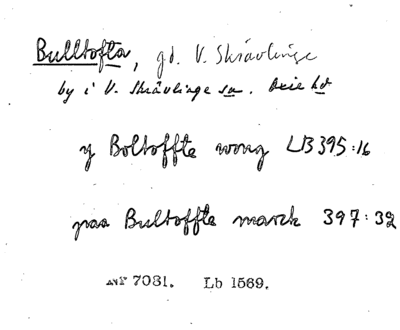 Bulltofta, gd. V. Skrävlinge
by i V. Skrävlinge sn. Oxie hd
y Boltoffte wong LB 395:16
paa Bultoffte marck 397:32
NF 7031. Lb 1569.